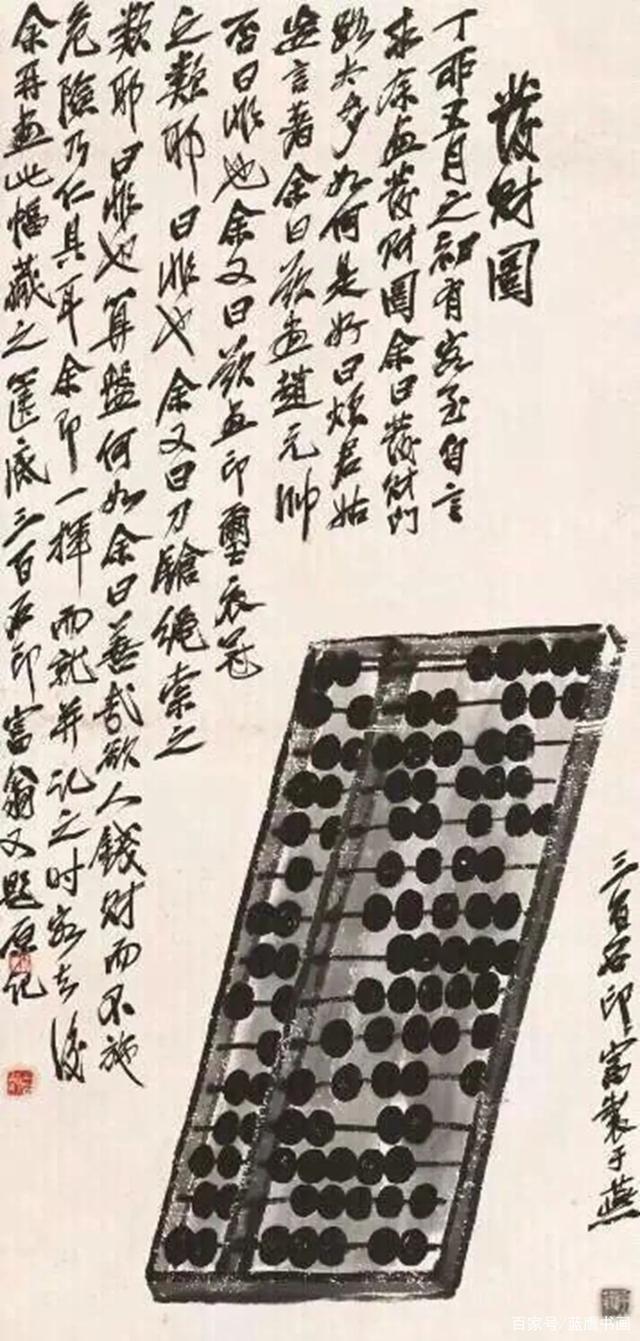 發財圖
丁卯五月之初有客至自言
求余畫發財圖余曰發財門
路太多如何是好曰煩君姑
妄言著余曰欲畫趙元帥
否曰非也余又曰欲畫印璽衣冠
之類耶曰非也余又曰刀鎗繩索之
類耶曰非也算盤何如余曰善哉欲人錢財而不施
危險乃仁具耳余即一揮而就并記之時客去後
余再畫此幅藏之篋底三百石印富翁又題原記
三百石印富製于燕
百家号/蓝鹰书画